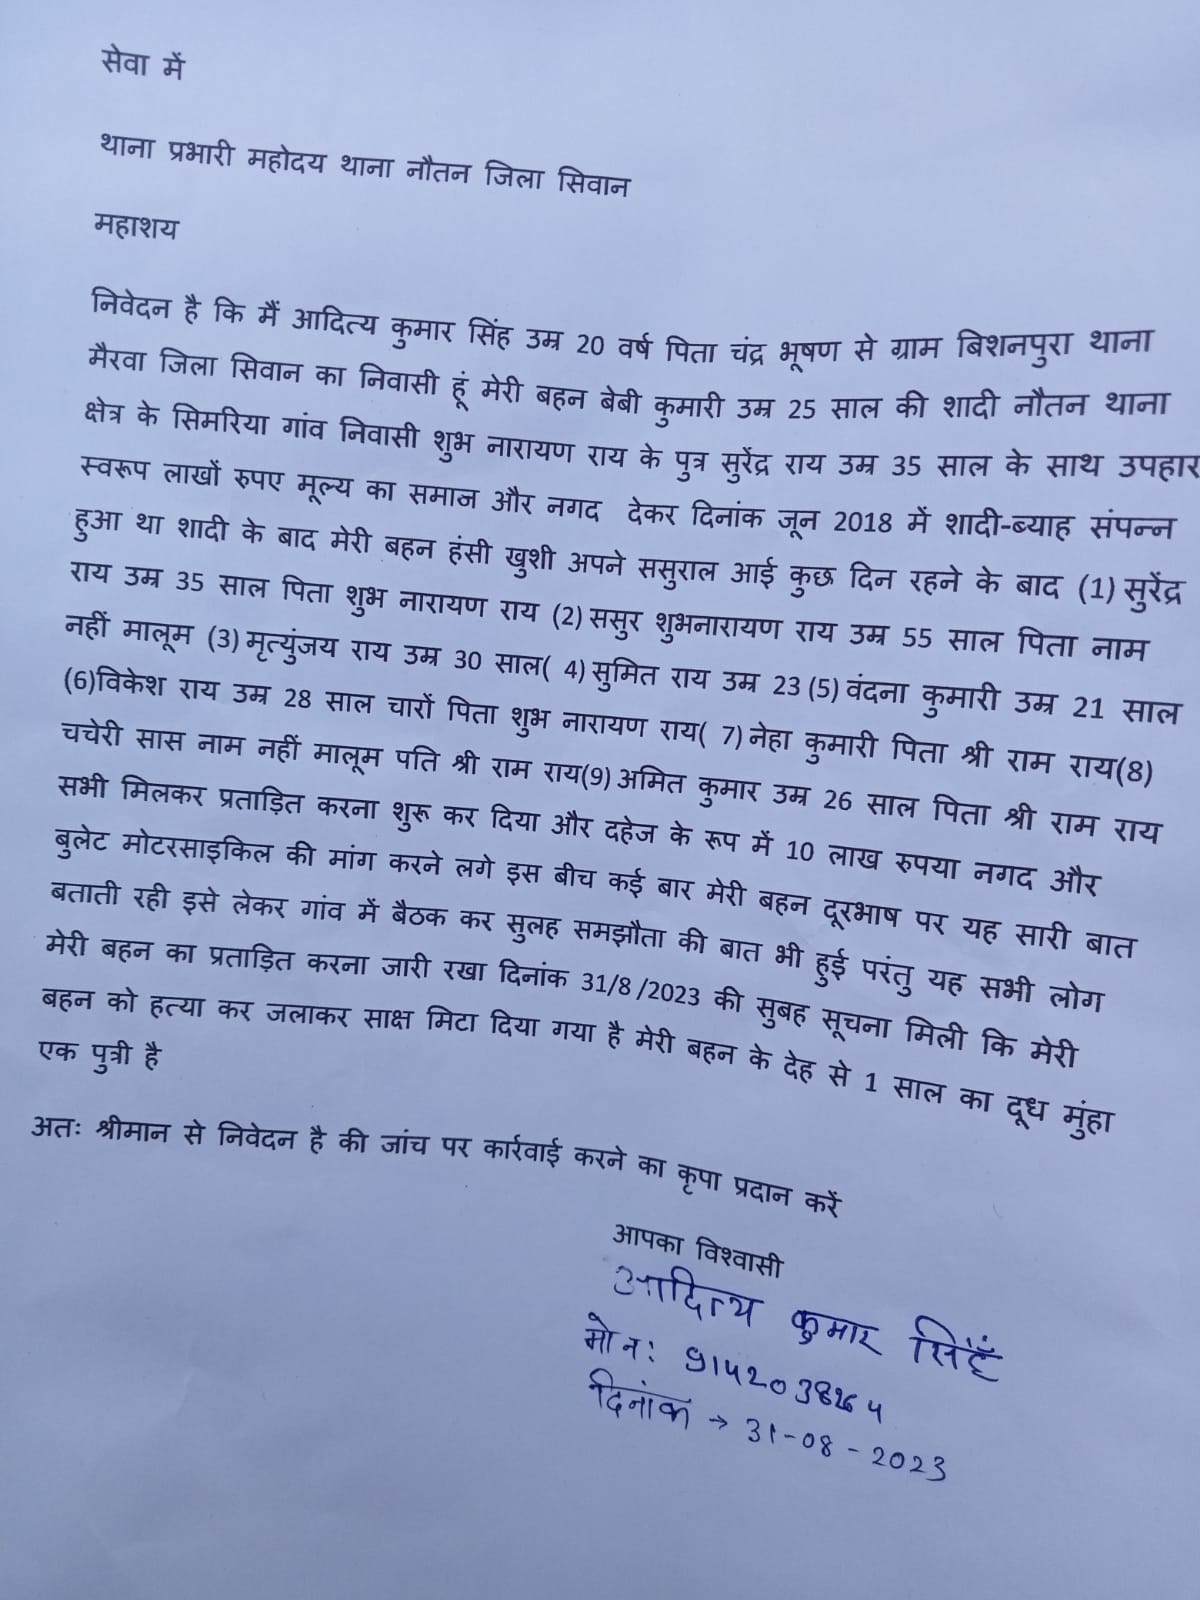 सेवा में
थाना प्रभारी महोदय थाना नौतन जिला सिवान
महाशय
निवेदन है कि मैं आदित्य कुमार सिंह उम्र 20 वर्ष पिता चंद्र भूषण से ग्राम बिशनपुरा थाना
मैरवा जिला सिवान का निवासी हूं मेरी बहन बेबी कुमारी उम्र 25 साल की शादी नौतन थाना
क्षेत्र के सिमरिया गांव निवासी शुभ नारायण राय के पुत्र सुरेंद्र राय उम्र 35 साल के साथ उपहार
स्वरूप लाखों रुपए मूल्य का समाज और नगद देकर दिनांक जून 2018 में शादी-ब्याह संपन्न
हुआ था शादी के बाद मेरी बहन हंसी खुशी अपने ससुराल आई कुछ दिन रहने के बाद (1) सुरेंद्र
राय उम्र 35 साल पिता शुभ नारायण राय (2) ससुर शुभनारायण राय उम्र 55 साल पिता नाम
नहीं मालूम (3) मृत्युंजय राय उम्र 30 साल( 4) सुमित राय उम्र 23 (5) वंदना कुमारी उम्र 21 साल
(6)विकेश राय उम्र 28 साल चारों पिता शुभ नारायण राय( 7) नेहा कुमारी पिता श्री राम राय(8)
चचेरी सास नाम नहीं मालूम पति श्री राम राय(9) अमित कुमार उम्र 26 साल पिता श्री राम राय
सभी मिलकर प्रताड़ित करना शुरू कर दिया और दहेज के रूप में 10 लाख रुपया नगद और
बुलेट मोटरसाइकिल की मांग करने लगे इस बीच कई बार मेरी बहन दूरभाष पर यह सारी बात
बताती रही इसे लेकर गांव में बैठक कर सुलह समझौता की बात भी हुई परंतु यह सभी लोग
मेरी बहन का प्रताड़ित करना जारी रखा दिनांक 31/8 /2023 की सुबह सूचना मिली कि मेरी
बहन को हत्या कर जलाकर साक्ष मिटा दिया गया है मेरी बहन के देह से 1 साल का दूध मुंहा
एक पुत्री है
अतः श्रीमान से निवेदन है की जांच पर कार्रवाई करने का कृपा प्रदान करें
आपका विश्वासी
आदित्य कुमार सिंह
मो न: 9142038264
दिनांक → 31-08-2023